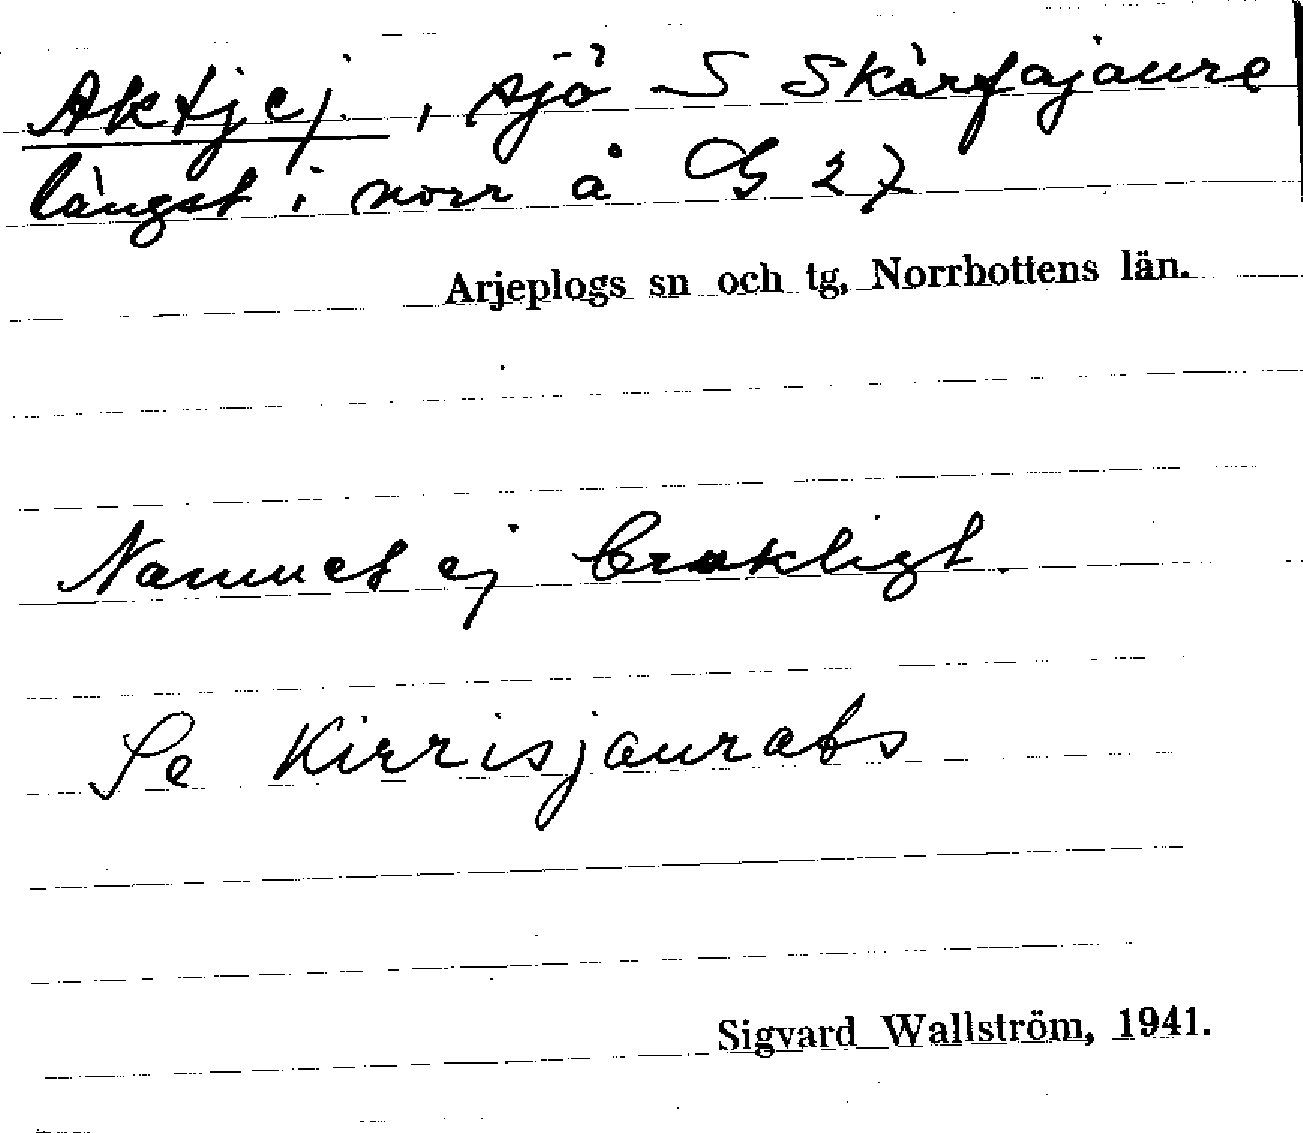 Aktjej., sjö S Skärfajaure
längst i norr å G 27
Arjeplogs sn och tg, Norrbottens län.
Namnet ej brukligt.
Se Kirrisjaurats
Sigvard Wallström, 1941.